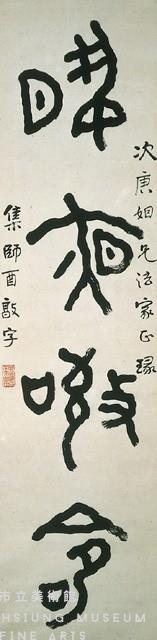 次庚姻兄法家正瑑
夜敬令
集師酉敦字
市立美術館
HSIUNG MUSEUM
FINE ARTS